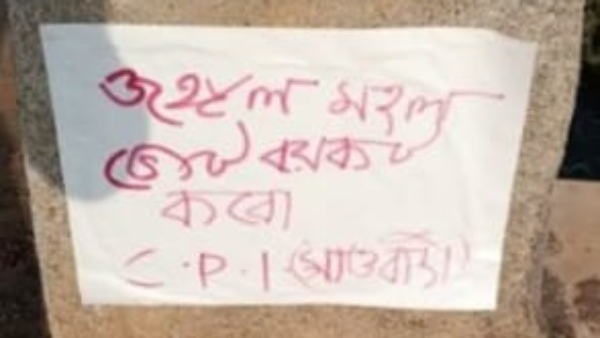 জঙ্গল মহল
ভোট বয়কট
করো
C.P.I (মাওবাদী)